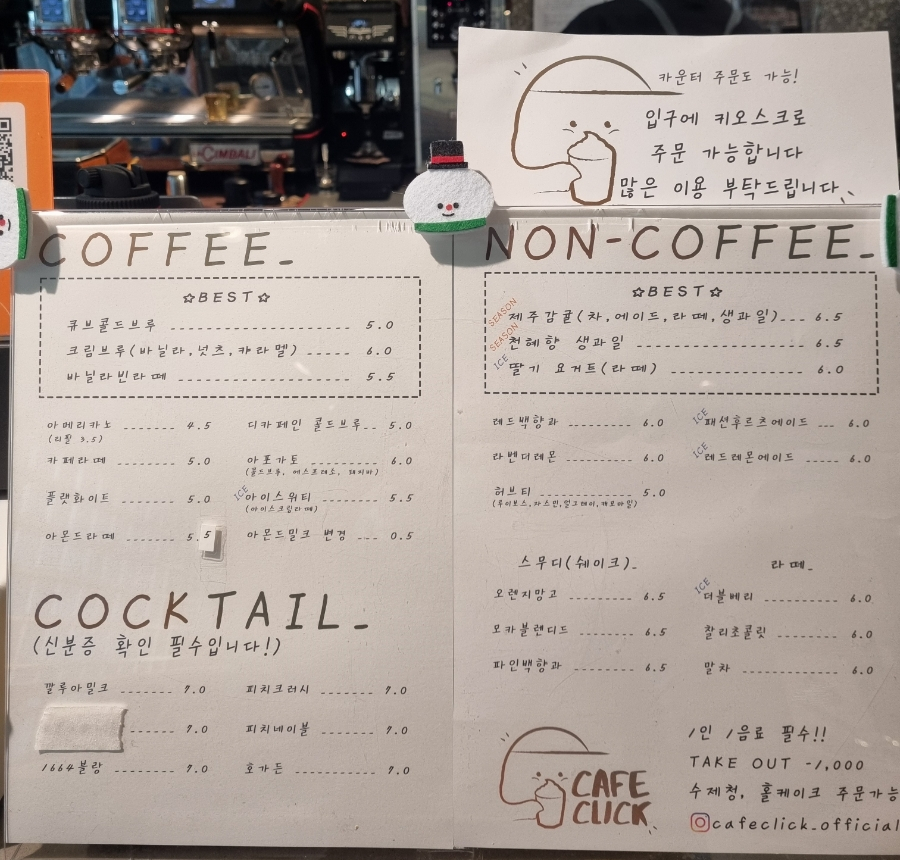 카운터 주문도 가능!
입구에 키오스크로
주문 가능합니다
많은 이용 부탁드립니다
CIMBALI
COFFEE_
☆BEST☆
큐브콜드브루 5.0
크림브루(바닐라,넛츠,카라멜) 6.0
바닐라빈라떼 5.5
아메리카노 4.5
(리필 3.5)
카페라떼 5.0
플랫화이트 5.0
아몬드라떼 5.5
디카페인 콜드브루 5.0
아포가토 6.0
(콜드브루, 에스프레소, 제키바)
ICE 아이스워티 5.5
(아이스크림라떼)
아몬드밀크 변경 0.5
COCKTAIL_
(신분증 확인 필수입니다!)
깔루아밀크 7.0
7.0
1664블랑 7.0
피치크러시 7.0
피치네이블 7.0
호가든 7.0
NON-COFFEE_
☆BEST☆
SEASON 제주감귤(차,에이드,라떼,생과일) 6.5
SEASON 천혜향 생과일 6.5
ICE 딸기 요거트(라떼) 6.0
레드백향과 6.0
라벤더레몬 6.0
허브티 5.0
(루이보스,자스민,얼그레이,캐모마일)
ICE 패션후르츠에이드 6.0
ICE 레드레몬에이드 6.0
스무디(쉐이크)_
오렌지망고 6.5
모카블렌디드 6.5
파인백향과 6.5
라떼_
ICE 더블베리 6.0
찰리초콜릿 6.0
말차 6.0
CAFE
CLICK
1인 1음료 필수!!
TAKE OUT -1,000
수제청, 홀케이크 주문가능
cafeclick_official